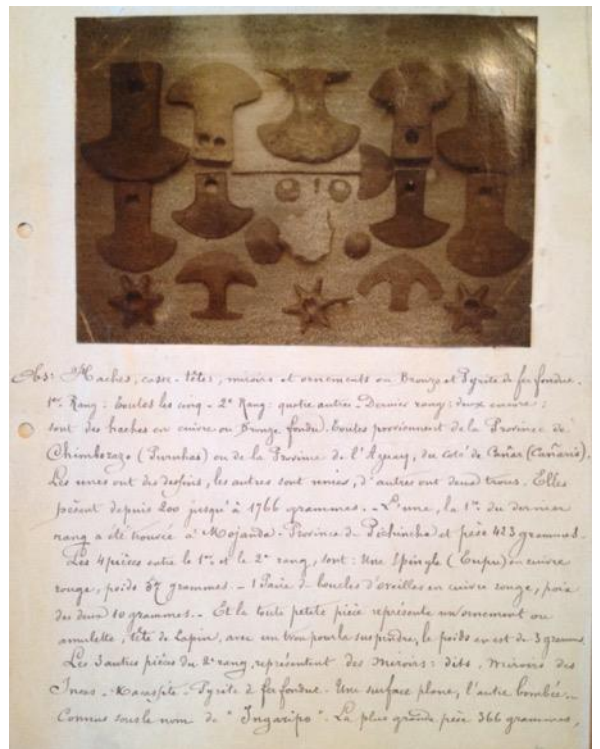 Obs: Haches, casse-têtes, miroirs et ornements en Bronze et Pyrite de fer fondue.
1er. Rang: toutes les cinq - 2e Rang: quatre autres - Dernier rang: deux encore:
sont des haches en cuivre ou Bronze fondu. Toutes proviennent de la Province de
Chimborazo (Puruhas) ou de la Province de l'Azuay, du coté de Cañar (Cañaris).
Les unes ont des dessins, les autres sont unies, d'autres ont deux trous. Elles
pèsent depuis 200 jusqu'à 1766 grammes. - L'une, la 1re du dernier
rang a été trouvée à Mojanda - Province de Pichincha et pèse 423 grammes.
Les 4 pièces entre le 1er et le 2e rang, sont: Une Epingle (Tupu) en cuivre
rouge, poids grammes. - 1 Paire de boucles d'oreilles en cuivre rouge, poids
des deux 10 grammes. - Et la toute petite pièce représente un ornement ou
amulette, tête de Lapin, avec un trou pour la suspendre, le poids en est de 3 grammes.
Les 3 autres pièces du 2e rang, représentent des Miroirs: dits, Miroirs des
Incas - Marcasite - Pyrite de fer fondue - Une surface plane, l'autre bombée -
Connus sous le nom de "Ingaripo". La plus grande pèse 366 grammes,